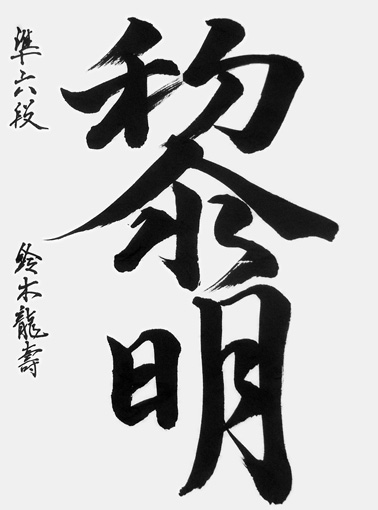 黎明
準六段
鈴木龍壽